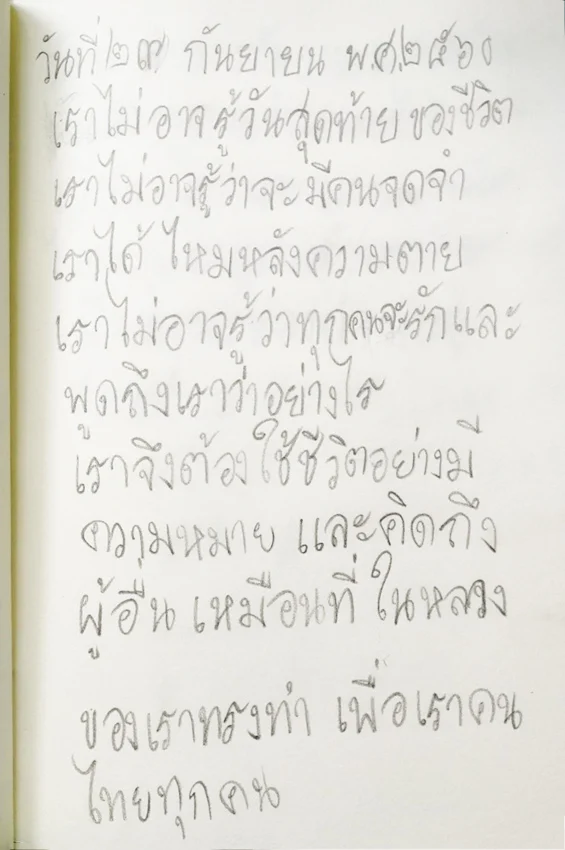 วันที่ ๒๗ กันยายน พ.ศ.๒๕๖๐
เราไม่อาจรู้วันสุดท้ายของชีวิต
เราไม่อาจรู้ว่าจะมีคนจดจำ
เราได้ไหมหลังความตาย
เราไม่อาจรู้ว่าทุกคนจะรักและ
พูดถึงเราว่าอย่างไร
เราจึงต้องใช้ชีวิตอย่างมี
ความหมาย และคิดถึง
ผู้อื่น เหมือนที่ ในหลวง
ของเราทรงทำ เพื่อเราคน
ไทยทุกคน